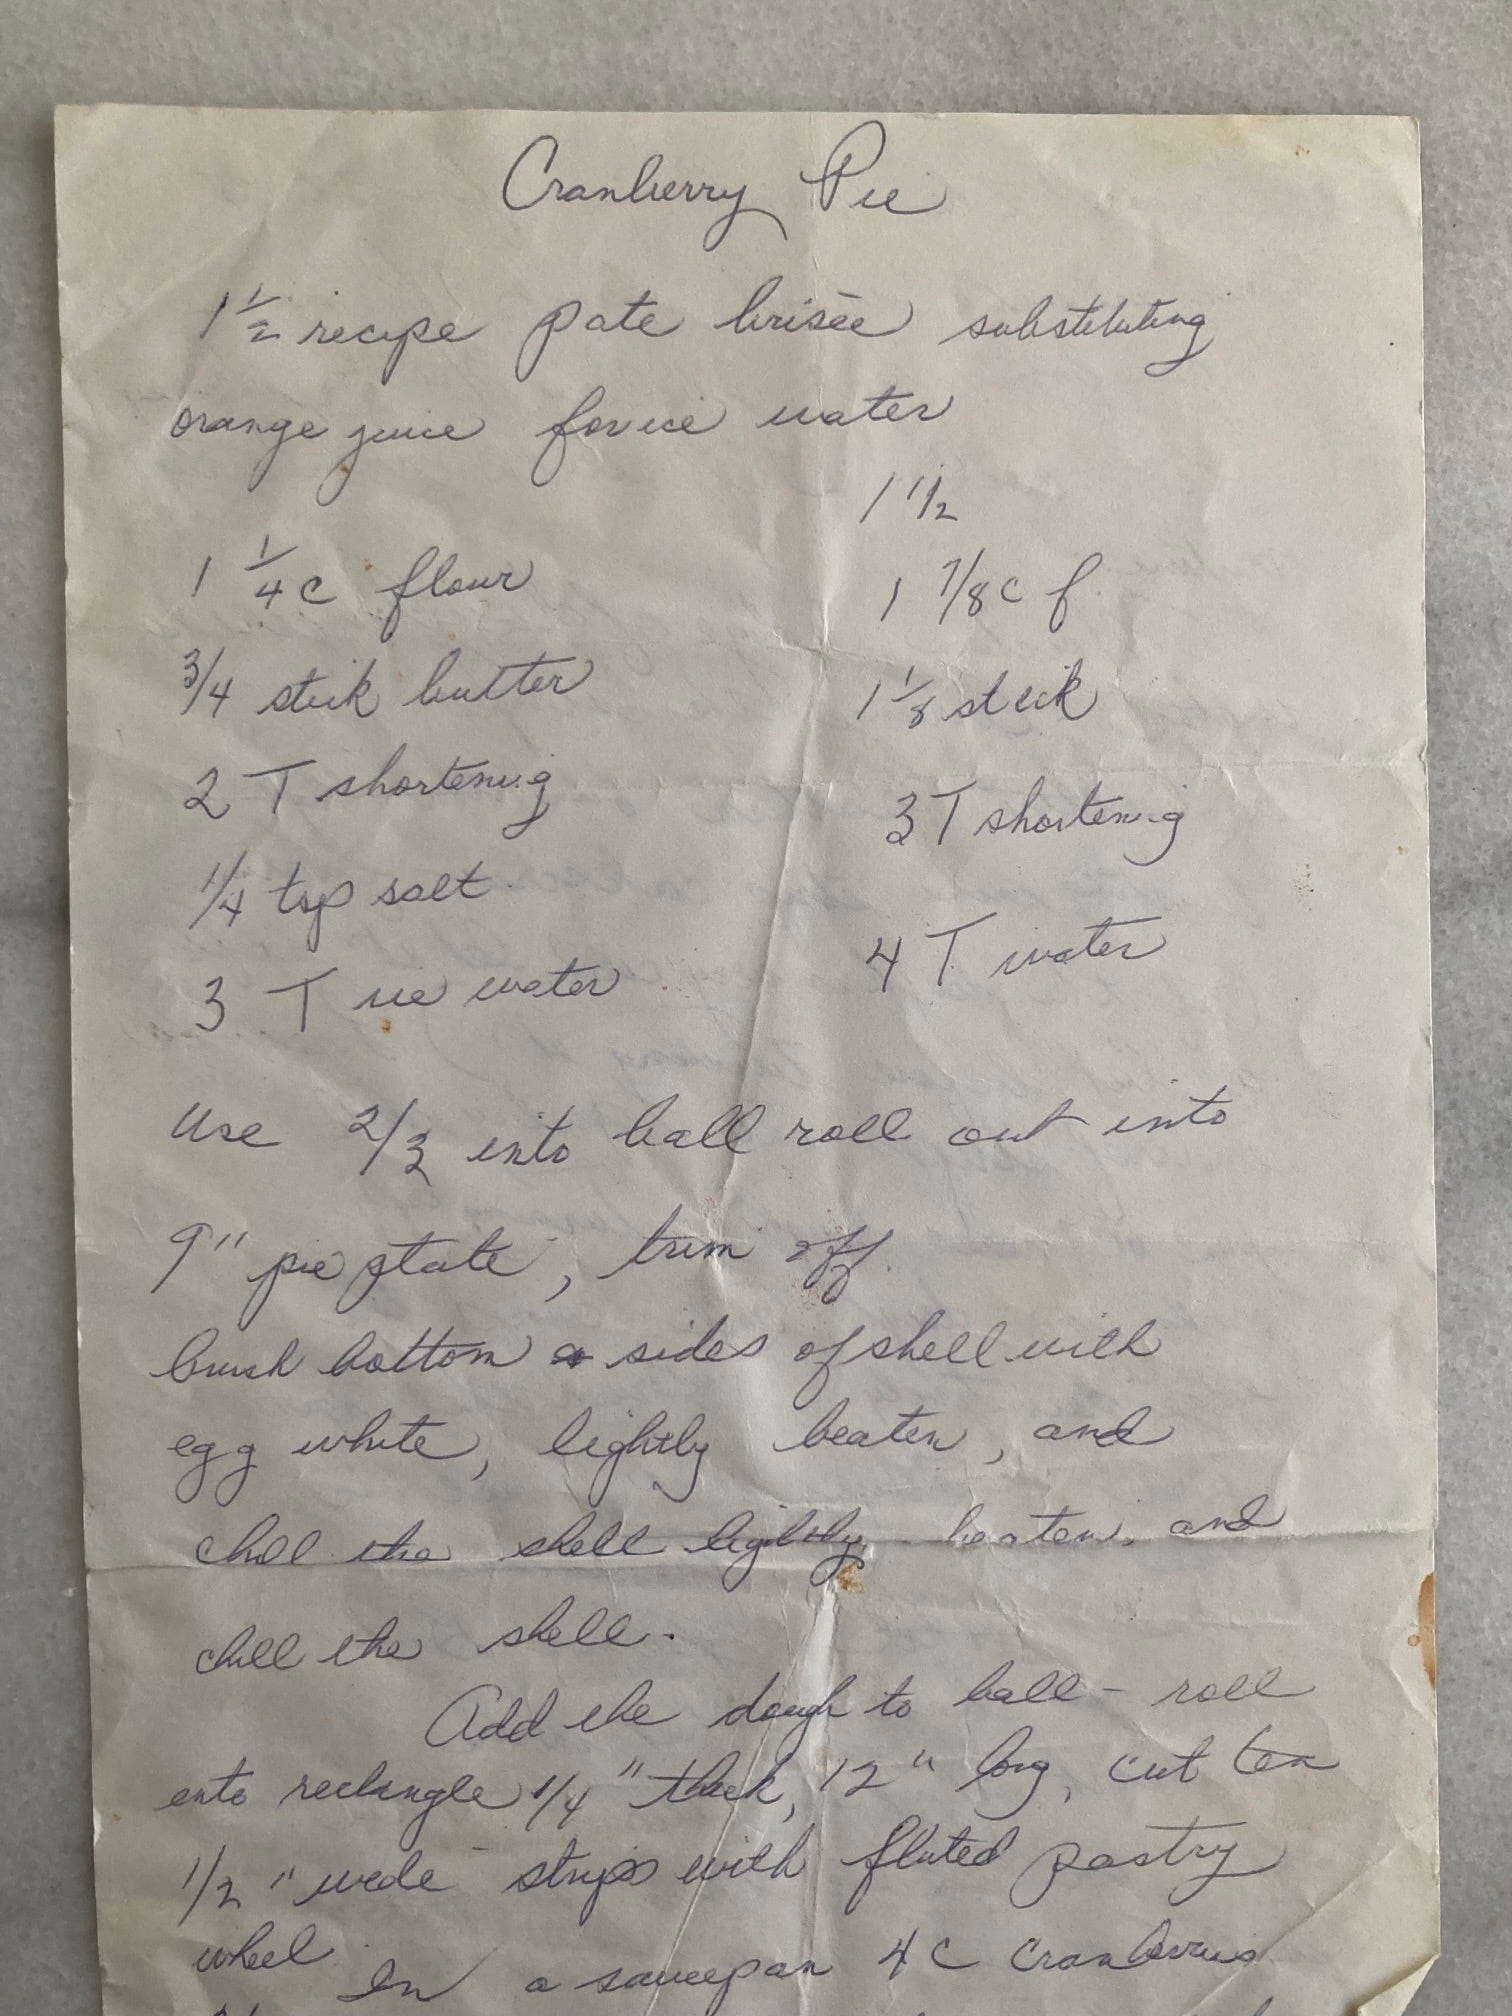 Cranberry Pie
1 1/2 recipe pate brisée substituting
orange juice for ice water
1 1/2
1 1/4 c flour
1 7/8 c f
3/4 stick butter
1 1/8 stick
2 T shortening
3 T shortening
1/4 tsp salt
3 T ice water
4 T water
Use 2/3 into ball roll out into
9" pie plate, trim off.
brush bottom & sides of shell with
egg white, lightly beaten, and
chill the shell lightly beaten, and
chill the shell.
Add the dough to ball - roll
into rectangle 1/4" thick, 12" long, cut ten
1/2" wide strips with fluted pastry
wheel.
In a saucepan 4 c cranberries